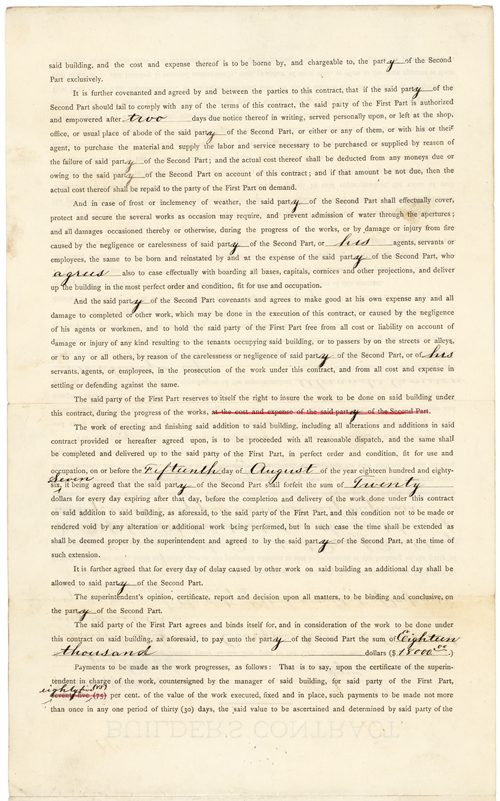 said building, and the cost and expense thereof is to be borne by, and chargeable to, the party of the Second
Part exclusively.
It is further covenanted and agreed by and between the parties to this contract, that if the said party of the
Second Part should fail to comply with any of the terms of this contract, the said party of the First Part is authorized
and empowered after two days due notice thereof in writing, served personally upon, or left at the shop,
office, or usual place of abode of the said party of the Second Part, or either or any of them, or with his or their
agent, to purchase the material and supply the labor and service necessary to be purchased or supplied by reason of
the failure of said party of the Second Part; and the actual cost thereof shall be deducted from any moneys due or
owing to the said party of the Second Part on account of this contract; and if that amount be not due, then the
actual cost thereof shall be repaid to the party of the First Part on demand.
And in case of frost or inclemency of weather, the said party of the Second Part shall effectually cover,
protect and secure the several works as occasion may require, and prevent admission of water through the apertures;
and all damages occasioned thereby or otherwise, during the progress of the works, or by damage or injury from fire
caused by the negligence or carelessness of said party of the Second Part, or his agents, servants or
employees, the same to be born and reinstated by and at the expense of the said party of the Second Part, who
agrees also to case effectually with boarding all bases, capitals, cornices and other projections, and deliver
up the building in the most perfect order and condition, fit for use and occupation.
And the said party of the Second Part covenants and agrees to make good at his own expense any and all
damage to completed or other work, which may be done in the execution of this contract, or caused by the negligence
of his agents or workmen, and to hold the said party of the First Part free from all cost or liability on account of
damage or injury of any kind resulting to the tenants occupying said building, or to passers by on the streets or alleys,
or to any or all others, by reason of the carelessness or negligence of said party of the Second Part, or of his
servants, agents, or employees, in the prosecution of the work under this contract, and from all cost and expense in
settling or defending against the same.
The said party of the First Part reserves to itself the right to insure the work to be done on said building under
this contract, during the progress of the works, at the cost and expense of the said party of the Second Part.
The work of erecting and finishing said addition to said building, including all alterations and additions in said
contract provided or hereafter agreed upon, is to be proceeded with all reasonable dispatch, and the same shall
be completed and delivered up to the said party of the First Part, in perfect order and condition, fit for use and
occupation, on or before the Fifteenth day of August of the year eighteen hundred and eighty-
Seven
six, it being agreed that the said party of the Second Part shall forfeit the sum of Twenty
dollars for every day expiring after that day, before the completion and delivery of the work done under this contract
on said addition to said building, as aforesaid, to the said party of the First Part, and this condition not to be made or
rendered void by any alteration or additional work being performed, but in such case the time shall be extended as
shall be deemed proper by the superintendent and agreed to by the said party of the Second Part, at the time of
such extension.
It is further agreed that for every day of delay caused by other work on said building an additional day shall be
allowed to said party of the Second Part.
The superintendent's opinion, certificate, report and decision upon all matters, to be binding and conclusive, on
the party of the Second Part.
The said party of the First Part agrees and binds itself for, and in consideration of the work to be done under
this contract on said building, as aforesaid, to pay unto the party of the Second Part the sum of Eighteen
thousand dollars ($ 18000.00.)
Payments to be made as the work progresses, as follows: That is to say, upon the certificate of the superin-
tendent in charge of the work, countersigned by the manager of said building, for said party of the First Part,
eighty five (85)
seventy-five (75) per cent. of the value of the work executed, fixed and in place, such payments to be made not more
than once in any one period of thirty (30) days, the said value to be ascertained and determined by said party of the
BUILDER'S CONTRACT